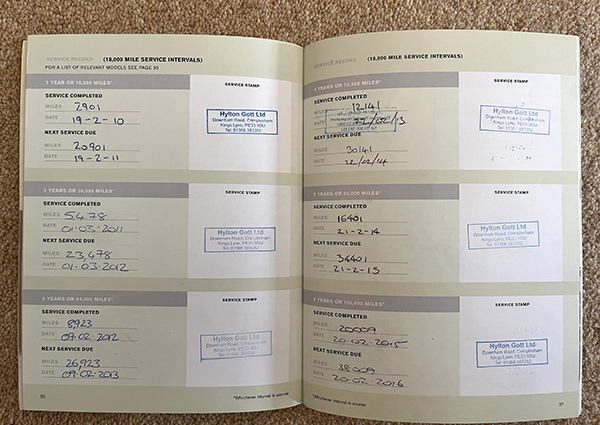 SERVICE RECORD (18,000 MILE SERVICE INTERVALS)
FOR A LIST OF RELEVANT MODELS SEE PAGE 35
1 YEAR OR 18,000 MILES*
SERVICE STAMP
SERVICE COMPLETED
MILES 2901
DATE 19-2-10
NEXT SERVICE DUE
MILES 20901
DATE 19-2-11
Hylton Gott Ltd
Downham Road, Crimplesham
Kings Lynn, PE33 9DU
Tel: 01366 383352
2 YEARS OR 36,000 MILES*
SERVICE STAMP
SERVICE COMPLETED
MILES 5,478
DATE 01.03.2011
NEXT SERVICE DUE
MILES 23,478
DATE 01.03.2012
Hylton Gott Ltd
Downham Road, Crimplesham
Kings Lynn, PE33 9DU
Tel: 01366 383352
3 YEARS OR 54,000 MILES*
SERVICE STAMP
SERVICE COMPLETED
MILES 8,923
DATE 09.02.2012
NEXT SERVICE DUE
MILES 26,923
DATE 09.02.2013
Hylton Gott Ltd
Downham Road, Crimplesham
Kings Lynn, PE33 9DU
Tel: 01366 383352
36
*Whichever interval is sooner
SERVICE RECORD (18,000 MILE SERVICE INTERVALS)
4 YEARS OR 72,000 MILES*
SERVICE STAMP
SERVICE COMPLETED
MILES 12141
DATE
NEXT SERVICE DUE
MILES 30141
DATE 22/02/14
Hylton Gott Ltd
Downham Road, Crimplesham
Kings Lynn, PE33 9DU
Tel: 01366 383352
5 YEARS OR 90,000 MILES*
SERVICE STAMP
SERVICE COMPLETED
MILES 16401
DATE 21-2-14
NEXT SERVICE DUE
MILES 34401
DATE 21-2-15
Hylton Gott Ltd
Downham Road, Crimplesham
Kings Lynn, PE33 9DU
Tel: 01366 383352
6 YEARS OR 108,000 MILES*
SERVICE STAMP
SERVICE COMPLETED
MILES 20009
DATE 20.02.2015
NEXT SERVICE DUE
MILES 38009
DATE 20.02.2016
Hylton Gott Ltd
Downham Road, Crimplesham
Kings Lynn, PE33 9DU
Tel: 01366 383352
*Whichever interval is sooner
37